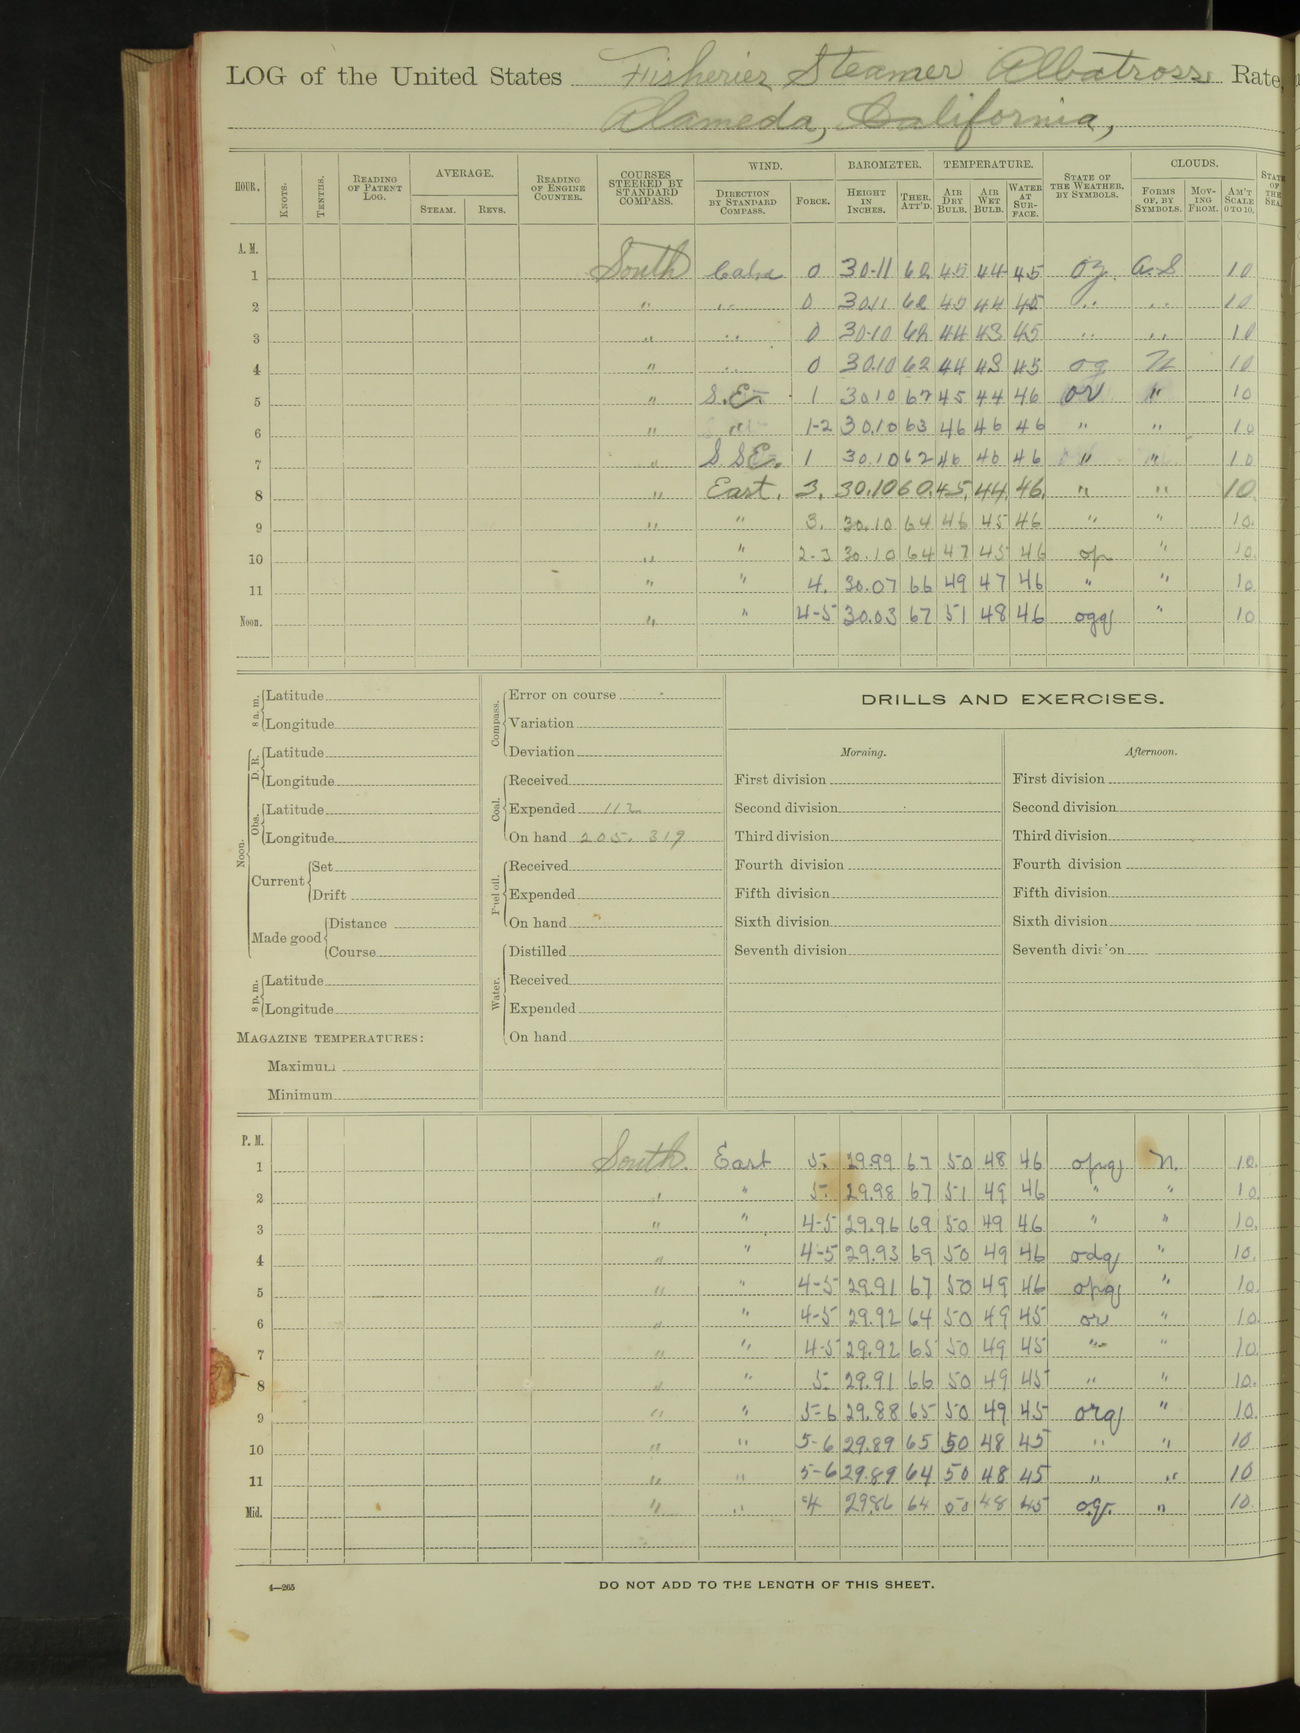 LOG of the United States Fisheries Steamer Albatross Rate,
Alameda, California,
HOUR. KNOTS. TENTHS. READING OF PATENT LOG. AVERAGE. STEAM. REVS. READING OF ENGINE COUNTER. COURSES STEERED BY STANDARD COMPASS. WIND. DIRECTION BY STANDARD COMPASS. FORCE. BAROMETER. HEIGHT IN INCHES. THER. ATT'D. TEMPERATURE. AIR DRY BULB. AIR WET BULB. WATER AT SURFACE. STATE OF THE WEATHER, BY SYMBOLS. CLOUDS. FORMS OF, BY SYMBOLS. MOVING FROM. AM'T SCALE 0 TO 10. STATE OF THE SEA.
A. M.
1 South Calm 0 30.11 62 45 44 45 oz. A.S 10
2 " " 0 30.11 62 45 44 45 " " 10
3 " " 0 30.10 62 44 43 45 " " 10
4 " " 0 30.10 62 44 43 45 og N 10
5 " S.E. 1 30.10 67 45 44 46 or " 10
6 " " 1-2 30.10 63 46 46 46 " " 10
7 " S SE. 1 30.10 62 46 46 46 " " 10
8 " East. 3. 30.10 60. 45. 44. 46. " " 10
9 " " 3. 30.10 64 46 45 46 " " 10.
10 " " 2-3 30.10 64 47 45 46 op " 10.
11 " " 4. 30.07 66 49 47 46 " " 10
Noon. " " 4-5 30.03 67 51 48 46 ogq " 10
8 a. m. Latitude
Longitude
Noon. D. R. Latitude
Longitude
Obs. Latitude
Longitude
Current Set
Drift
Made good Distance
Course
8 p. m. Latitude
Longitude
MAGAZINE TEMPERATURES:
Maximum
Minimum
Compass. Error on course
Variation
Deviation
Coal. Received
Expended 112
On hand 205. 319
Fuel oil. Received
Expended
On hand
Water. Distilled
Received
Expended
On hand
DRILLS AND EXERCISES.
Morning. Afternoon.
First division First division
Second division Second division
Third division Third division
Fourth division Fourth division
Fifth division Fifth division
Sixth division Sixth division
Seventh division Seventh division
P. M.
1 South. East 5. 29.99 67 50 48 46 opq N. 10.
2 " " 5. 29.98 67 51 49 46 " " 10.
3 " " 4-5 29.96 69 50 49 46 " " 10.
4 " " 4-5 29.93 69 50 49 46 odq " 10.
5 " " 4-5 29.91 67 50 49 46 opq " 10.
6 " " 4-5 29.92 64 50 49 45 or " 10.
7 " " 4-5 29.92 65 50 49 45 " " 10.
8 " " 5. 29.91 66 50 49 45 " " 10.
9 " " 5-6 29.88 65 50 49 45 orq " 10.
10 " " 5-6 29.89 65 50 48 45 " " 10
11 " " 5-6 29.89 64 50 48 45 " " 10
Mid. " " 4 29.86 64 50 48 45 oqr. " 10.
4—265
DO NOT ADD TO THE LENGTH OF THIS SHEET.